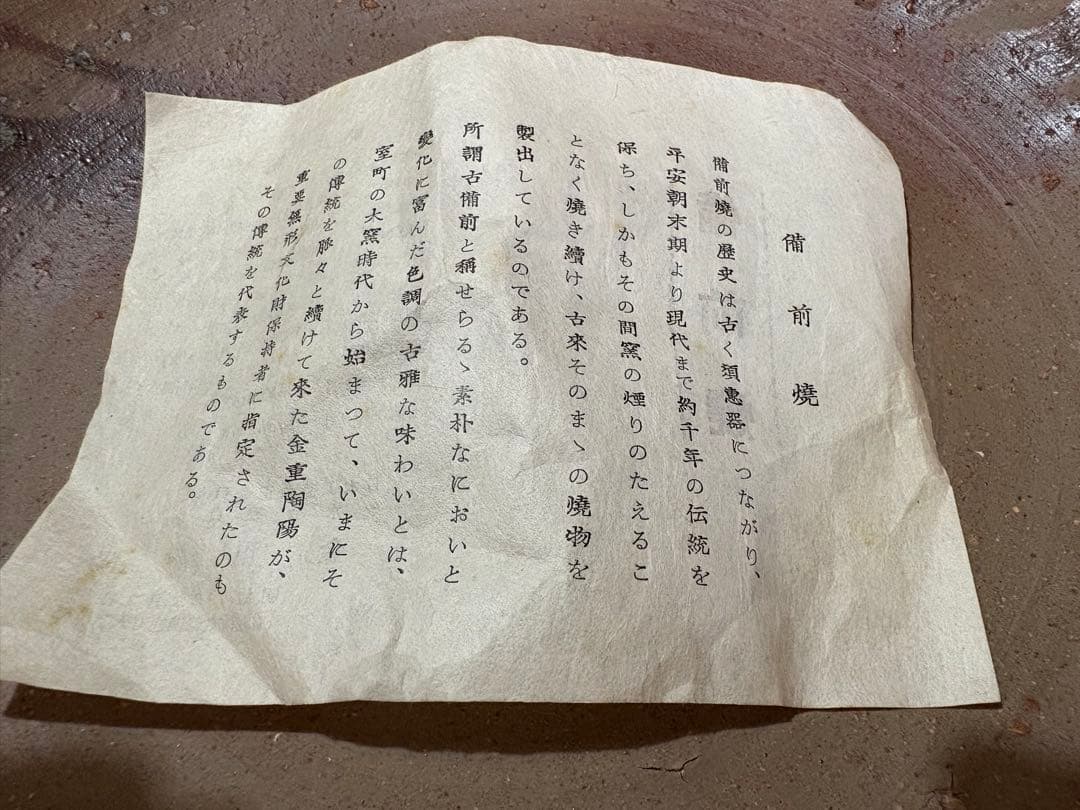 備前燒
備前燒の歴史は古く須惠器につながり、
平安朝末期より現代まで約千年の伝統を
保ち、しかもその間窯の煙りのたえるこ
となく燒き續け、古來そのまゝの燒物を
製出しているのである。
所謂古備前と稱せらるゝ素朴なにおいと
變化に富んだ色調の古雅な味わいとは、
室町の大窯時代から始まつて、いまにそ
の傳統を脉々と續けて來た金重陶陽が、
重要無形文化財保持者に指定されたのも
その傳統を代表するものである。